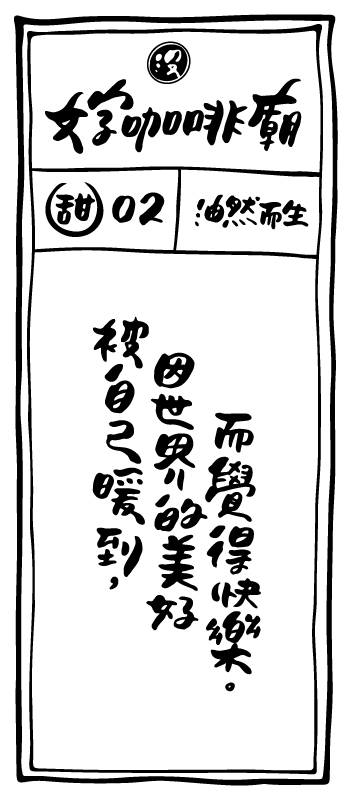 沒
好咖啡廟
甜 02
油然而生
被自己暖到，
因世界的美好
而覺得快樂。